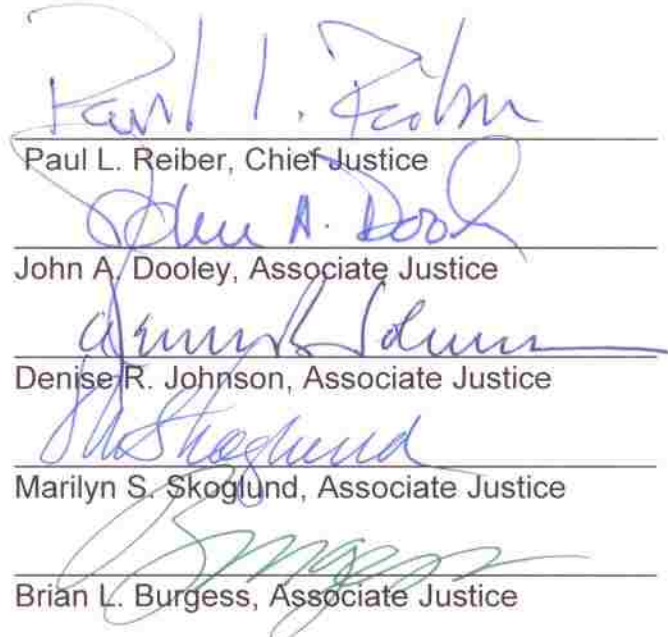 Paul L. Reiber
Paul L. Reiber, Chief Justice
John A. Dooley
John A. Dooley, Associate Justice
Denise R. Johnson
Denise R. Johnson, Associate Justice
M Skoglund
Marilyn S. Skoglund, Associate Justice
Burgess
Brian L. Burgess, Associate Justice